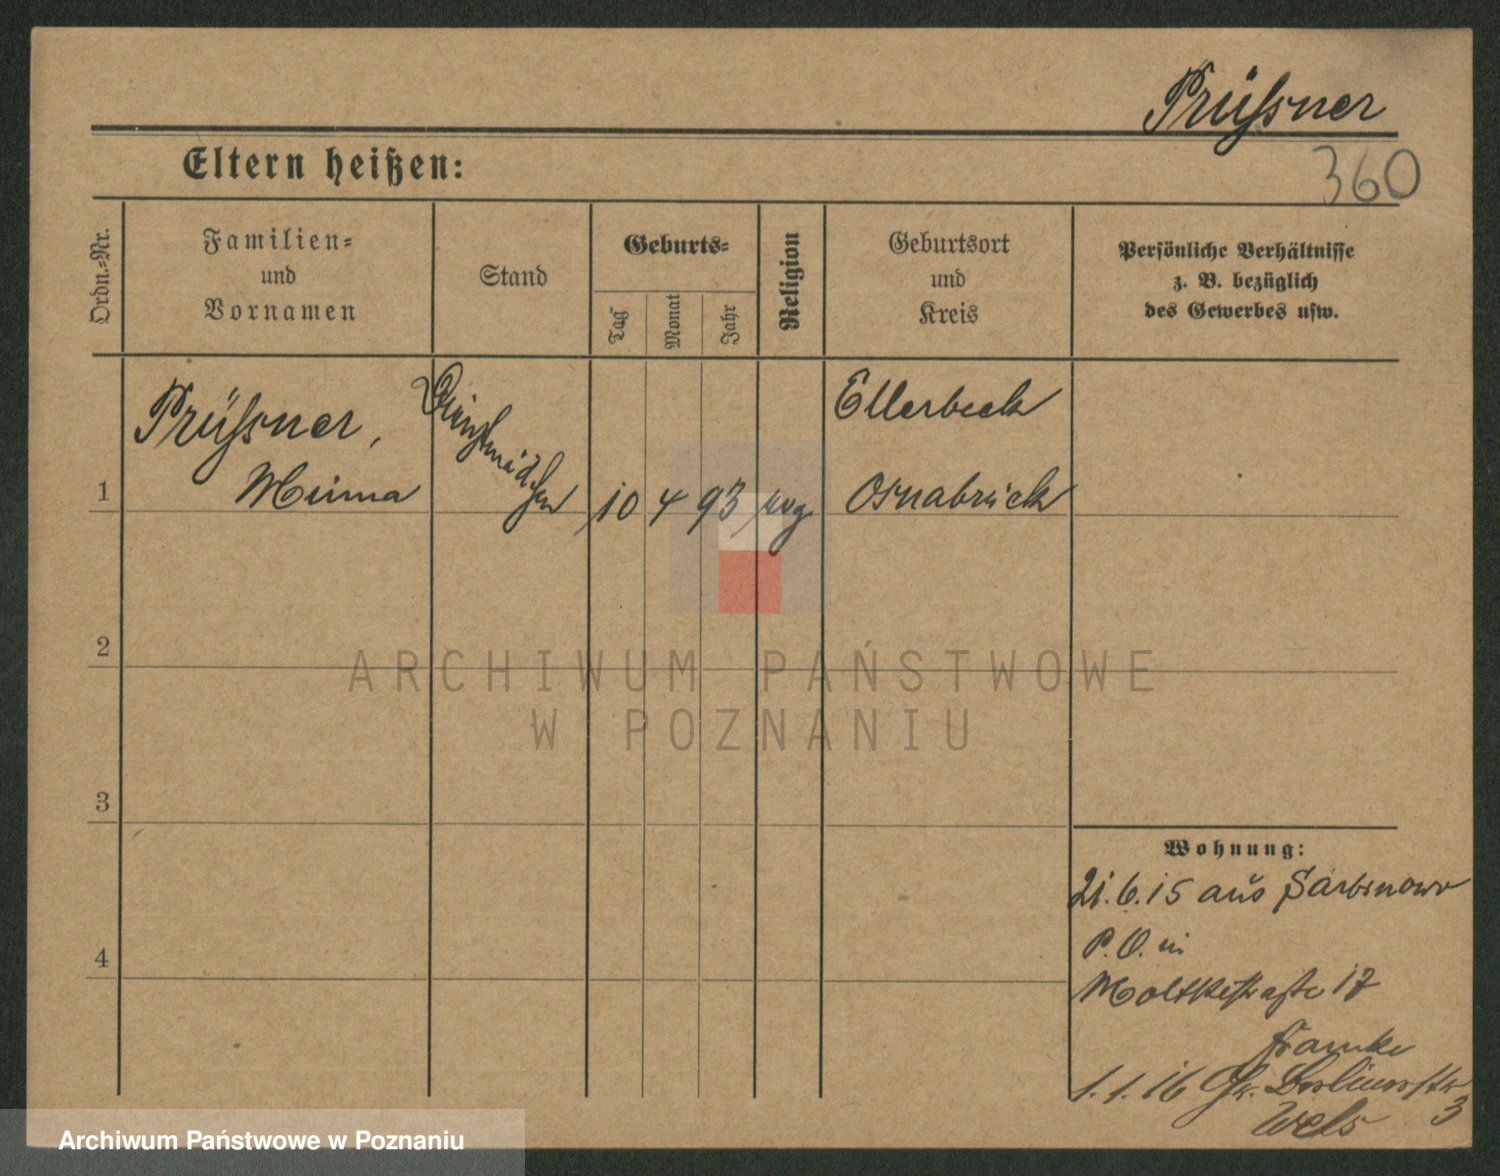 Prüssner
360
Eltern heißen:
Ordn.=Nr.
Familien=
und
Vornamen
Stand
Geburts=
Tag
Monat
Jahr
Religion
Geburtsort
und
Kreis
Persönliche Verhältnisse
z. B. bezüglich
des Gewerbes usw.
1
Prüssner,
Minna
Dienstmädchen
10 4 93
evg.
Ellerbeck
Osnabrück
2
3
4
Wohnung:
21.6.15 aus Sarbinowo
P.O. in
Moltkestraße 17
Framke
1.1.16 Gr. Berlinerstr
3
ARCHIWUM PAŃSTWOWE
W POZNANIU
Archiwum Państwowe w Poznaniu